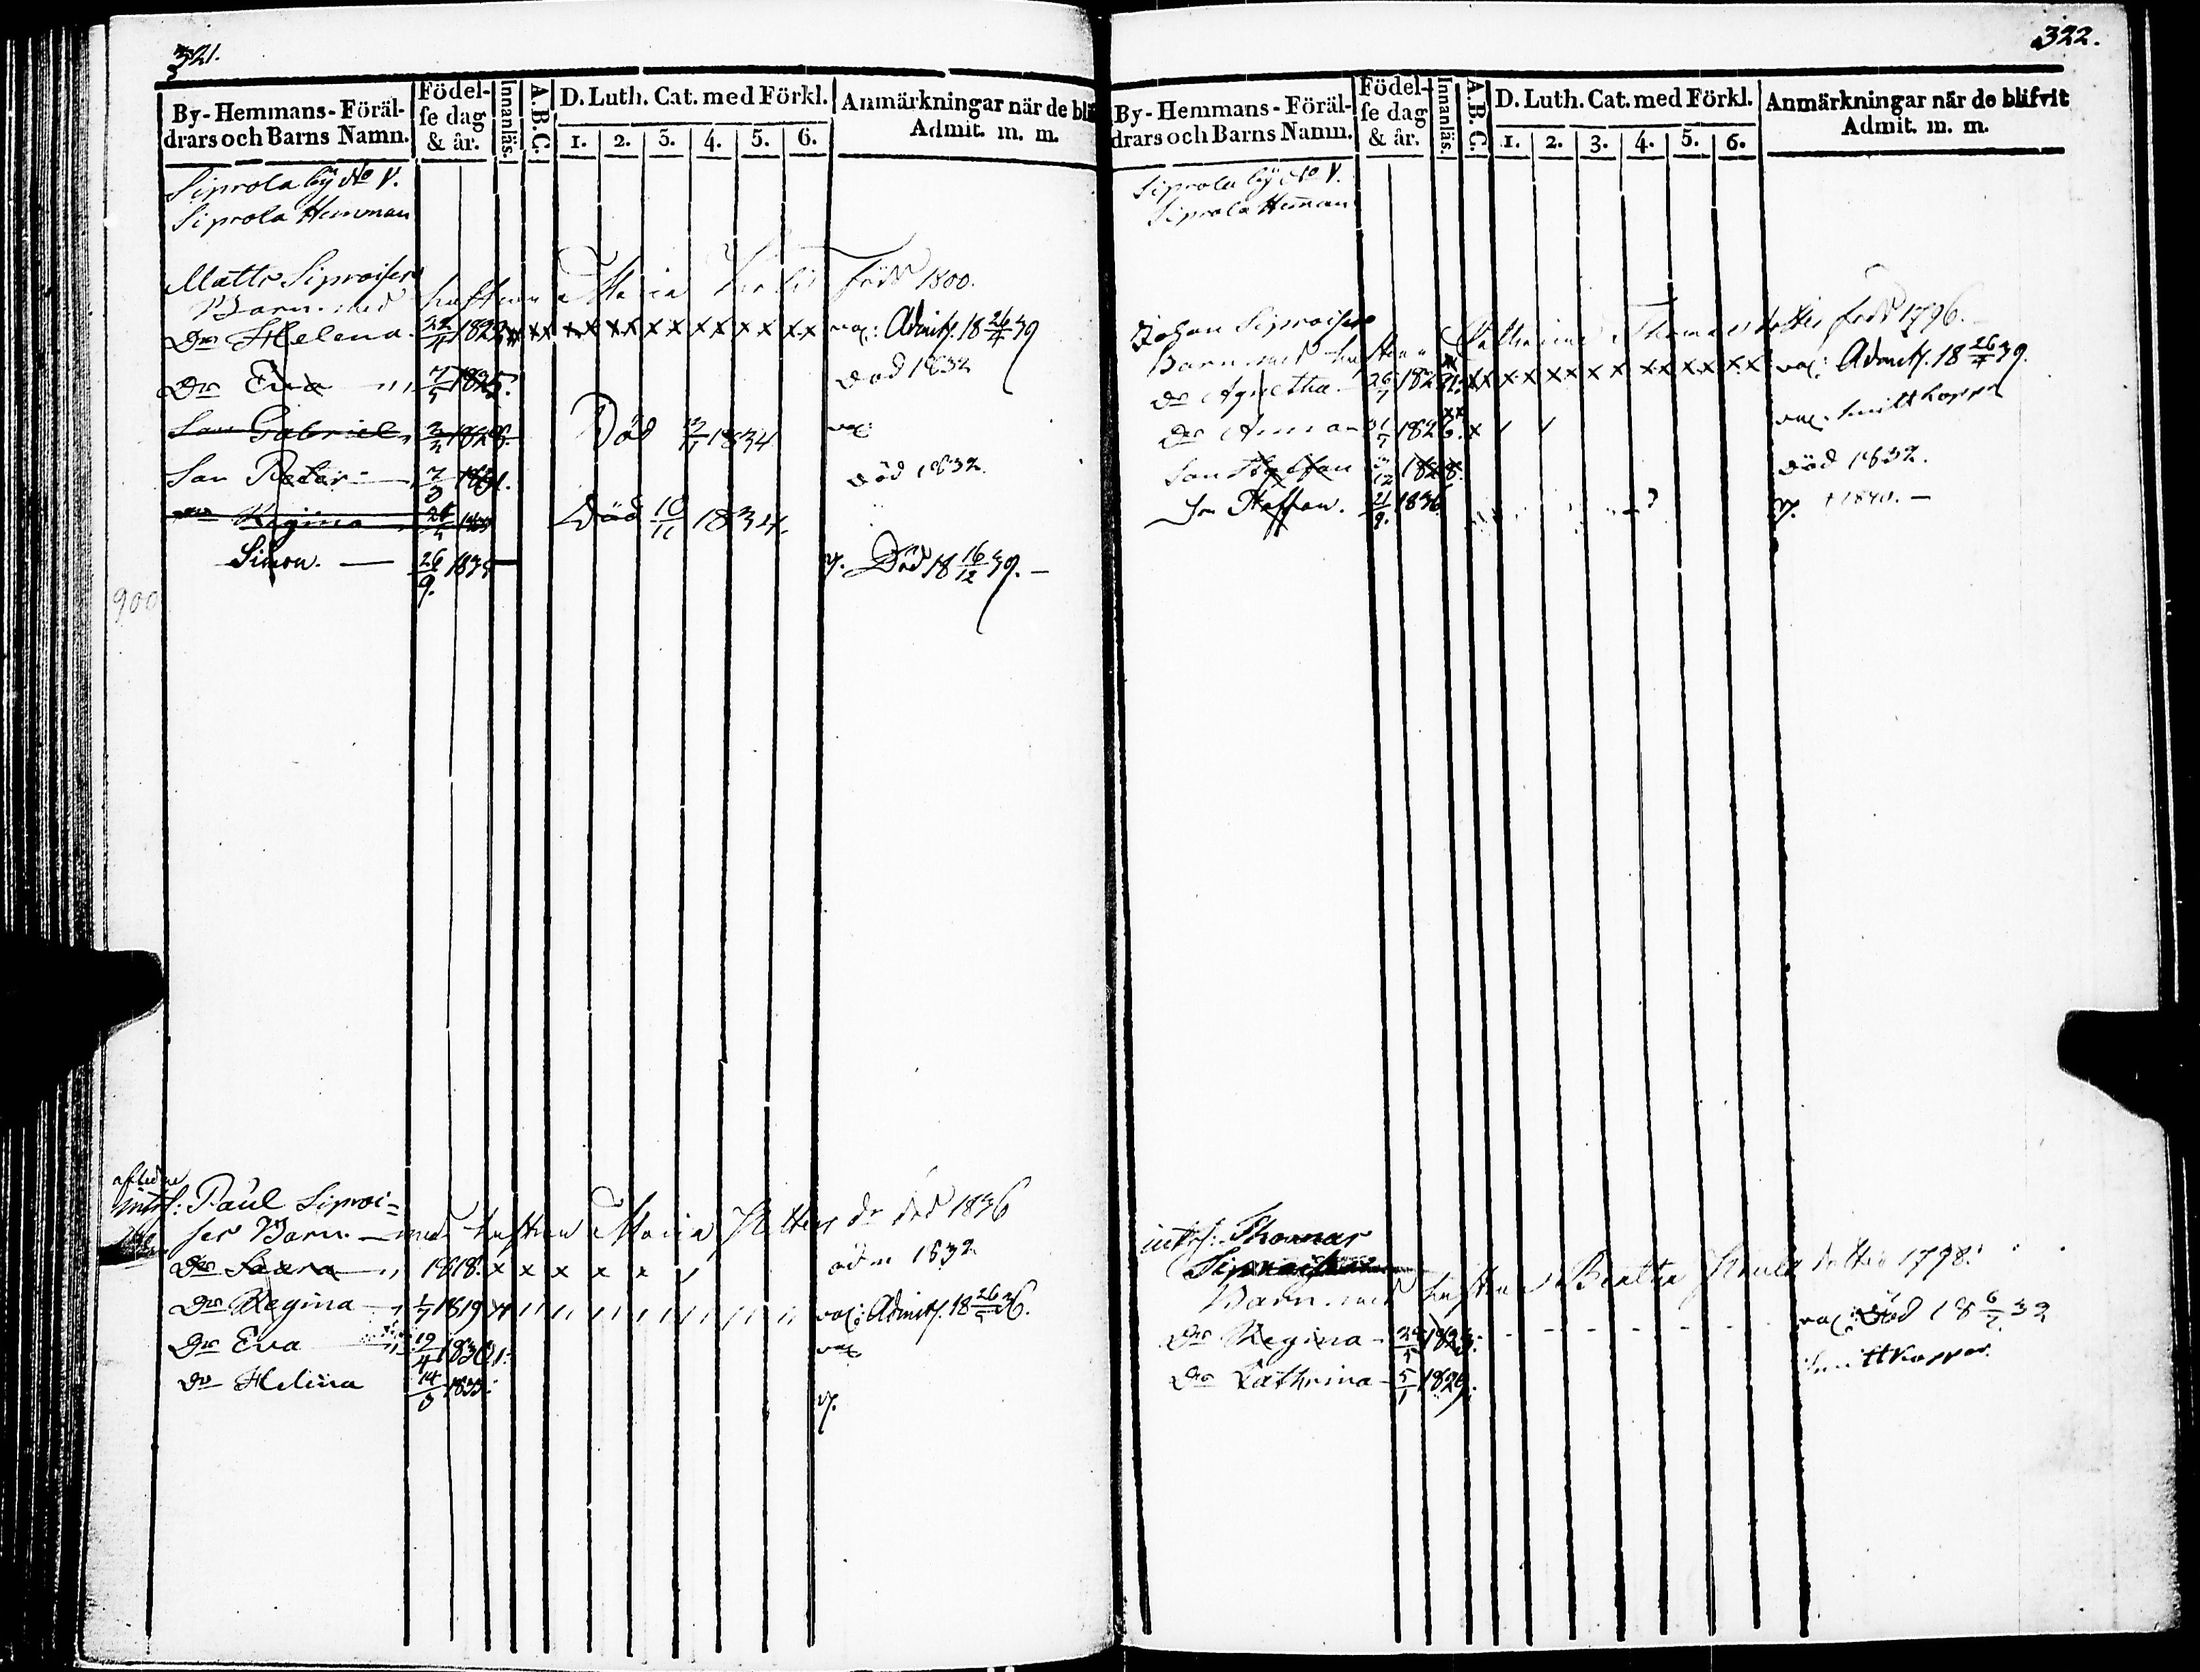 321.
By-Hemmans-Föräl-drars och Barns Namn. Födel-se dag & år. Innanläs. A.B.C. D. Luth. Cat. med Förkl. 1. 2. 3. 4. 5. 6. Anmärkningar när de bli Admit. m. m.
Siprola by No V.
Siprola Hemman
Matts Siproisers
Barn med hustrun Maria född 1800.
Dr Helena 22/4 1823 xx xx xx xx xx xx xx vac: Admitt. 18 26/4 39
Dr Eva 7/5 1825. död 1832
Son Gabriel 3/3 1828. Död 1834 vac:
Son Petar 7/3 1831. död 1832.
Dr Regina Död 10/11 1834.
Simon. 26/9. v. Död 18 16/12 39.
900
afledne
intrs: Paul Siproi=
ses Barn. med hustrun Maria dr död 1836
Dr Saara 1818. x x x x x 1832
Dr Regina 1/7 1819 vac: Admitt. 18 26/5 36.
Dr Eva 19/4 1830. vac
Dr Helina 14/3 1833. v.
322.
By-Hemmans-Föräl-drars och Barns Namn. Födel-se dag & år. Innanläs. A.B.C. D. Luth. Cat. med Förkl. 1. 2. 3. 4. 5. 6. Anmärkningar när de blifvit Admit. m. m.
Siprola by No V.
Siprola Hemman
Johan Siproisers
Barn med hustrun Catharina Thomasdotter född 1796.
Dr Agnetha xx xx xx xx xx xx xx vac: Admitt. 18 26/4 39.
Dr Anna 1826. x vac. Smittkoppr
Son Staffan 1828. död 1832.
Son Staffan. 21/9. 1836 v. † 1840.
intrs: Thomas
Siproisers
Barn med hustrun Beatta Paulsdotter 1798.
Dr Regina 1823. vac: Död 18 6/2 32
Dr Cathrina 5/1 1829. Smittkoppor.